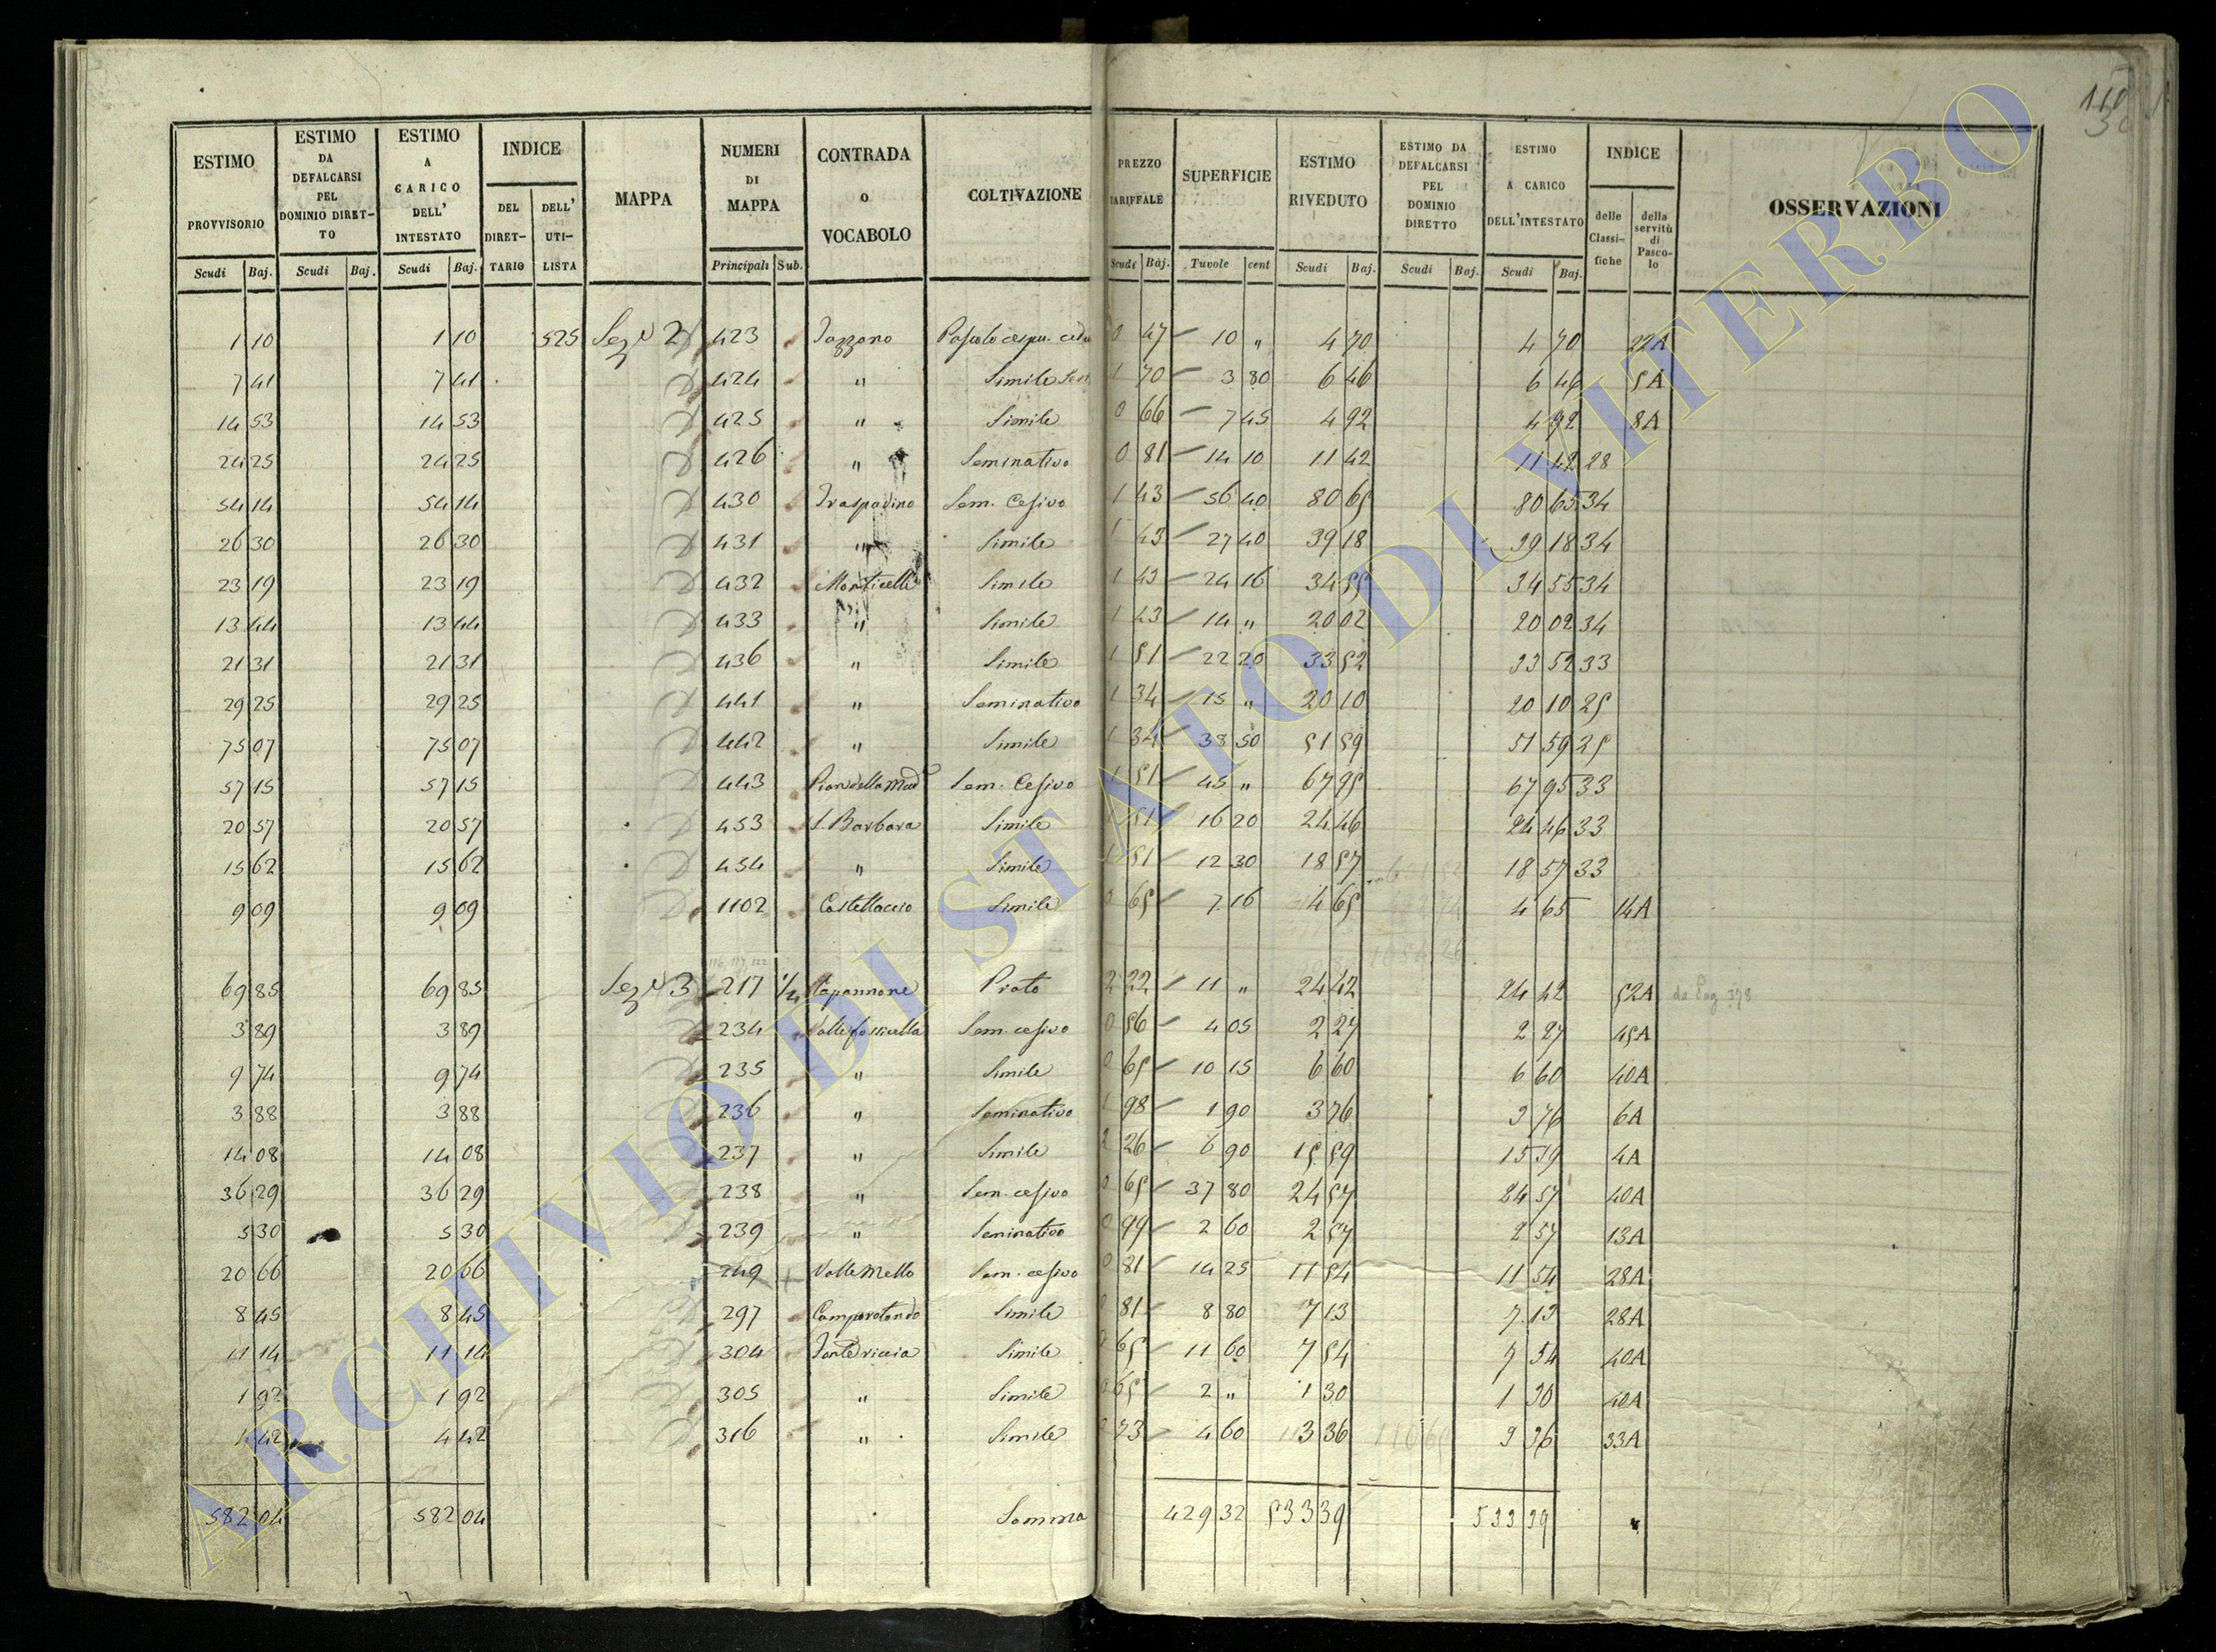 110
30
ESTIMO PROVVISORIO | ESTIMO DA DEFALCARSI PEL DOMINIO DIRET-TO | ESTIMO A CARICO DELL' INTESTATO | INDICE DEL DIRET-TARIO | DELL' UTI-LISTA | MAPPA | NUMERI DI MAPPA | CONTRADA O VOCABOLO | COLTIVAZIONE | PREZZO TARIFFALE | SUPERFICIE | ESTIMO RIVEDUTO | ESTIMO DA DEFALCARSI PEL DOMINIO DIRETTO | ESTIMO A CARICO DELL'INTESTATO | INDICE delle Classi-fiche | della servitù di Pasco-lo | OSSERVAZIONI
Scudi Baj. | Scudi Baj. | Scudi Baj. | Principali Sub. | Scudi Baj. | Tavole cent | Scudi Baj. | Scudi Baj. | Scudi Baj.
1 10 | 1 10 | 525 | Sez 2 | 423 | Jazzano | Pascolo cespu. | 0 47 | 10 " | 4 70 | 4 70 | 22A
7 41 | 7 41 | 424 | " | Simile | 1 70 | 3 80 | 6 46 | 6 46 | 5A
14 53 | 14 53 | 425 | " | Simile | 0 66 | 7 45 | 4 92 | 4 92 | 8A
24 25 | 24 25 | 426 | " | Seminativo | 0 81 | 14 10 | 11 42 | 11 42 | 28
54 14 | 54 14 | 430 | Traspadino | Sem. Cesivo | 1 43 | 56 40 | 80 65 | 80 65 | 34
26 30 | 26 30 | 431 | " | Simile | 1 43 | 27 40 | 39 18 | 39 18 | 34
23 19 | 23 19 | 432 | Monticelli | Simile | 1 43 | 24 16 | 34 55 | 34 55 | 34
13 44 | 13 44 | 433 | " | Simile | 1 43 | 14 " | 20 02 | 20 02 | 34
21 31 | 21 31 | 436 | " | Simile | 1 51 | 22 20 | 33 52 | 33 52 | 33
29 25 | 29 25 | 441 | " | Seminativo | 1 34 | 15 " | 20 10 | 20 10 | 25
75 07 | 75 07 | 442 | " | Simile | 1 34 | 38 50 | 51 59 | 51 59 | 25
57 15 | 57 15 | 443 | Pian della Mad | Sem. Cesivo | 1 51 | 45 " | 67 95 | 67 95 | 33
20 57 | 20 57 | 453 | S. Barbara | Simile | 1 51 | 16 20 | 24 46 | 24 46 | 33
15 62 | 15 62 | 454 | " | Simile | 1 51 | 12 30 | 18 57 | 18 57 | 33
9 09 | 9 09 | 1102 | Castellaccio | Simile | 0 65 | 7 16 | 4 65 | 4 65 | 14A
69 85 | 69 85 | Sez 3 | 217 | Capannone | Prato | 2 22 | 11 " | 24 42 | 24 42 | 52A | da Pag. 378
3 89 | 3 89 | 234 | Valle fossicella | Sem. cesivo | 0 56 | 4 05 | 2 27 | 2 27 | 45A
9 74 | 9 74 | 235 | " | Simile | 0 65 | 10 15 | 6 60 | 6 60 | 40A
3 88 | 3 88 | 236 | " | Seminativo | 1 98 | 1 90 | 3 76 | 3 76 | 6A
14 08 | 14 08 | 237 | " | Simile | 2 26 | 6 90 | 15 59 | 15 59 | 4A
36 29 | 36 29 | 238 | " | Sem. cesivo | 0 65 | 37 80 | 24 57 | 24 57 | 40A
5 30 | 5 30 | 239 | " | Seminativo | 0 99 | 2 60 | 2 57 | 2 57 | 13A
20 66 | 20 66 | 249 | Valle Mello | Sem. cesivo | 0 81 | 14 25 | 11 54 | 11 54 | 28A
8 45 | 8 45 | 297 | Camporotondo | Simile | 0 81 | 8 80 | 7 13 | 7 13 | 28A
11 14 | 11 14 | 304 | Simile | 0 65 | 11 60 | 7 54 | 7 54 | 40A
1 92 | 1 92 | 305 | " | Simile | 0 65 | 2 " | 1 30 | 1 30 | 40A
4 42 | 4 42 | 316 | " | Simile | 0 73 | 4 60 | 3 36 | 3 36 | 33A
582 04 | 582 04 | Somma | 429 32 | 533 39 | 533 39 | "
ARCHIVIO DI STATO DI VITERBO